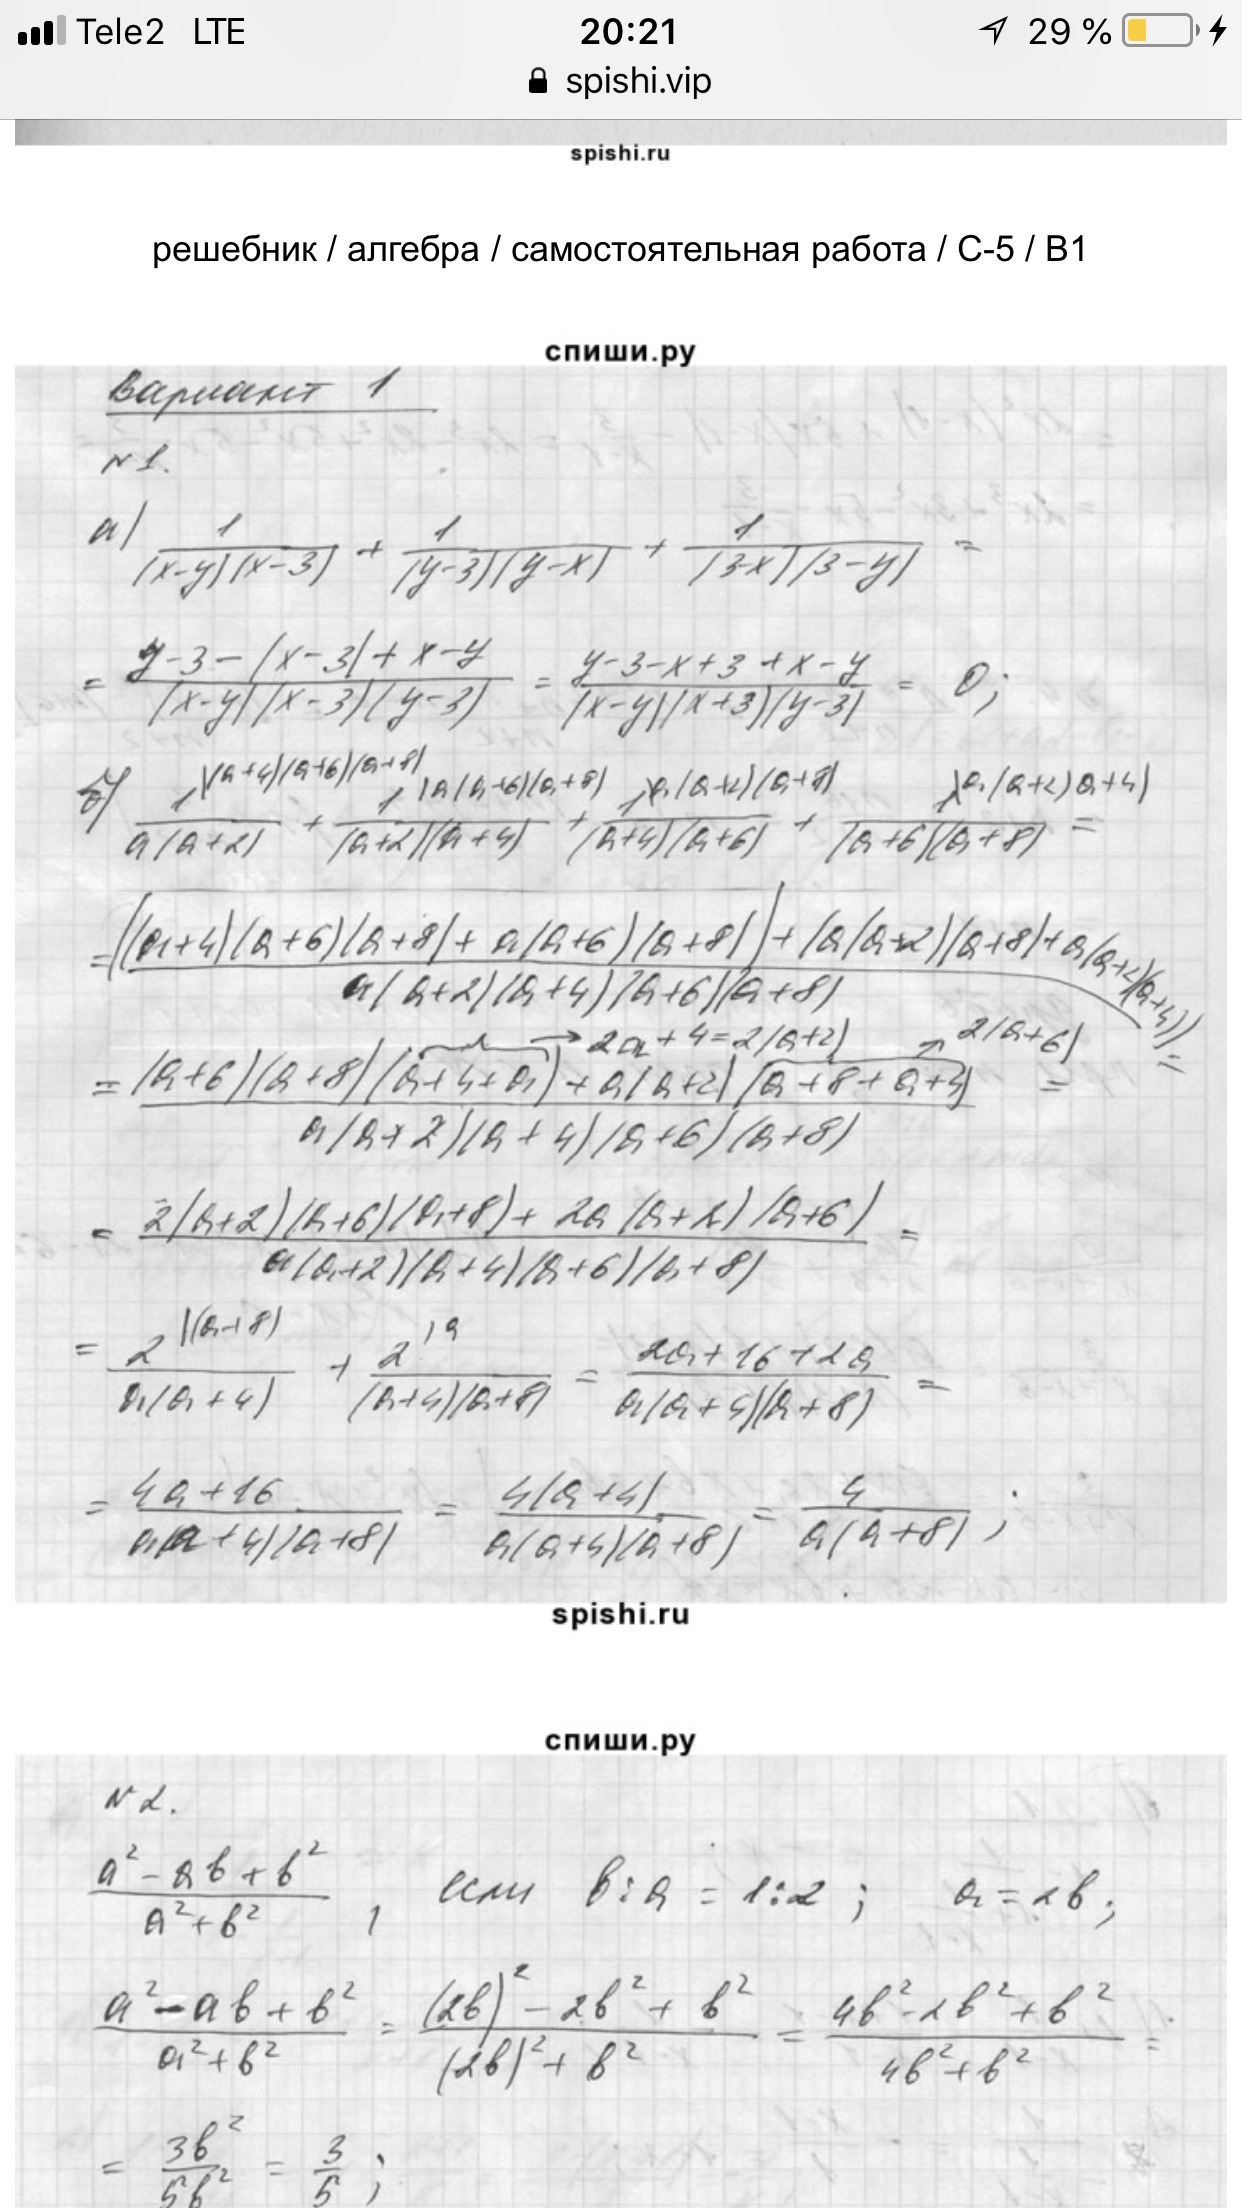 Tele2 LTE 20:21 29 %
spishi.vip
spishi.ru
решебник / алгебра / самостоятельная работа / С-5 / В1
спиши.ру
Вариант 1
N1.
а) 1/((x-y)(x-3)) + 1/((y-3)(y-x)) + 1/((3-x)(3-y)) =
= (y-3-(x-3)+x-y)/((x-y)(x-3)(y-3)) = (y-3-x+3+x-y)/((x-y)(x+3)(y-3)) = 0;
б) 1|(a+4)(a+6)(a+8)/(a(a+2)) + 1|a(a+6)(a+8)/((a+2)(a+4)) + 1|a(a+2)(a+8)/((a+4)(a+6)) + 1|a(a+2)(a+4)/((a+6)(a+8)) =
= ((a+4)(a+6)(a+8)+a(a+6)(a+8))+(a(a+2)(a+8)+a(a+2)(a+4)) / a(a+2)(a+4)(a+6)(a+8) =
→ 2a+4=2(a+2) 2(a+6)
= (a+6)(a+8)(a+4+a)+a(a+2)(a+8+a+4) / a(a+2)(a+4)(a+6)(a+8) =
= 2(a+2)(a+6)(a+8)+2a(a+2)(a+6) / a(a+2)(a+4)(a+6)(a+8) =
= 2|(a+8)/(a(a+4)) + 2|a/((a+4)(a+8)) = (2a+16+2a)/(a(a+4)(a+8)) =
= (4a+16)/(a(a+4)(a+8)) = 4(a+4)/(a(a+4)(a+8)) = 4/(a(a+8));
spishi.ru
спиши.ру
N2.
(a²-ab+b²)/(a²+b²), если b:a=1:2; a=2b;
(a²-ab+b²)/(a²+b²) = ((2b)²-2b²+b²)/((2b)²+b²) = (4b²-2b²+b²)/(4b²+b²) =
= 3b²/5b² = 3/5;